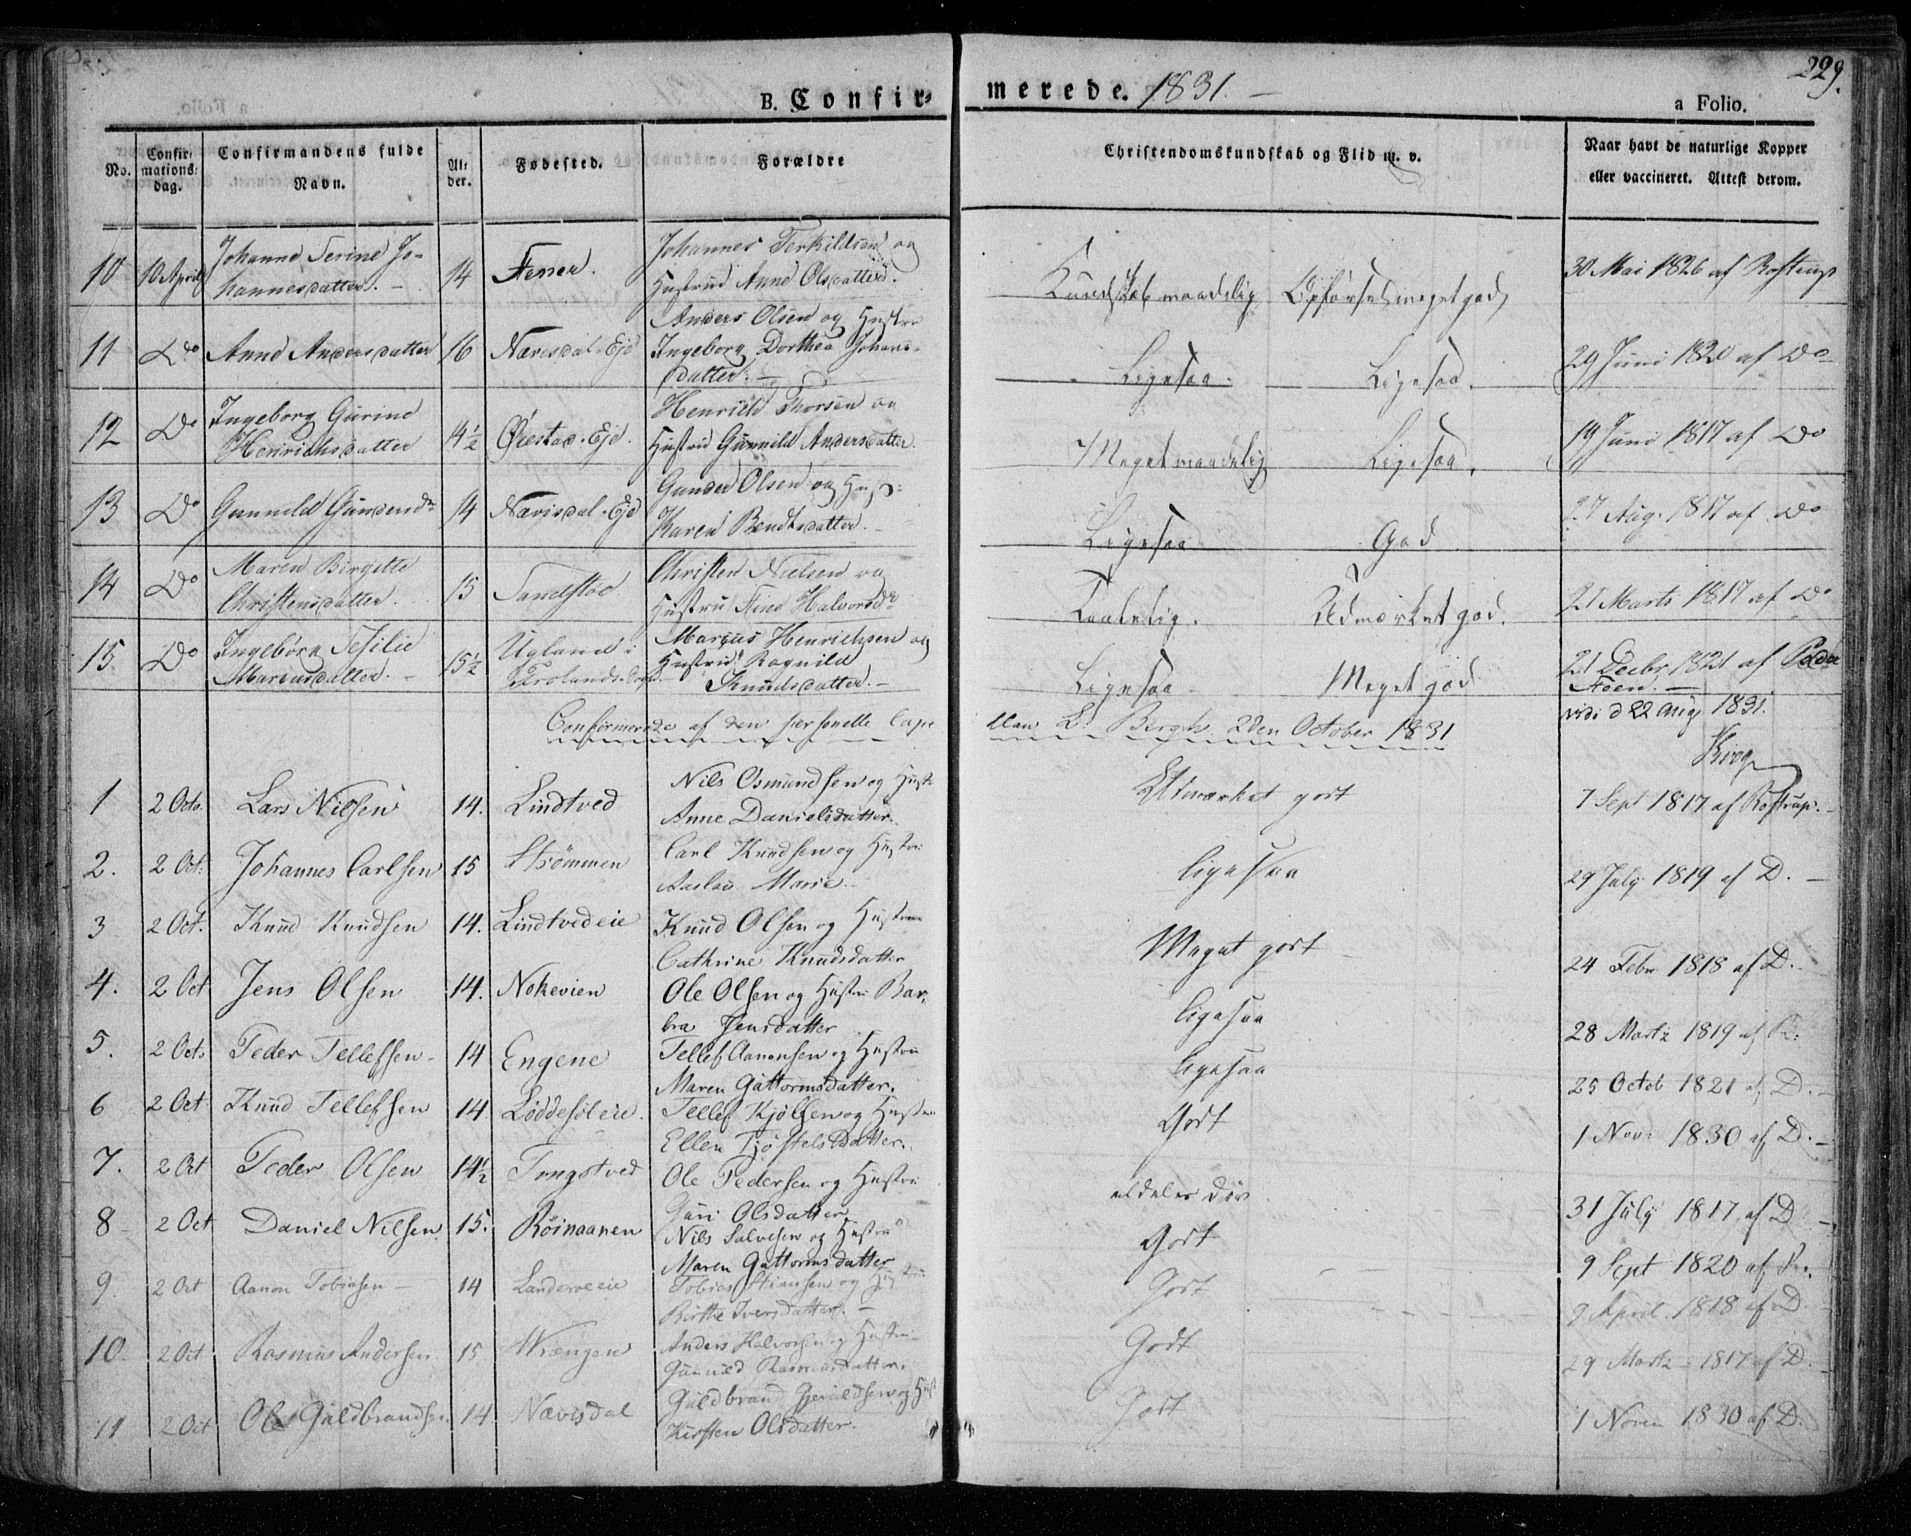 229.
B. Confirmerede. 1831.
a Folio.
No.
Confirmationsdag.
Confirmandens fulde Navn.
Alder.
Fødested.
Forældre
Christendomskundskab og Flid m. v.
Naar havt de naturlige Kopper eller vaccineret. Attest derom.
10 10 April Johanne Serine Johannesdatter. 14 Johannes Terkildsen og Hustrue Anne Olsdatter. Kundskab maadelig Opførsel meget god 30 Mai 1826 af Rostrup
11 Do Anne Andersdatter 16 Nævisdal-Eje Anders Olsen og Hustru Ingeborg Dorthea Johansdatter. Ligesaa. Ligesaa. 29 Juni 1820 af Do
12 Do Ingeborg Gurine Henrichsdatter 14½ Øiestad-Eje. Henrich Thorsen og Hustrue Gunnild Andersdatter Meget maadelig Ligesaa. 19 Juni 1817 af Do
13 Do Gunnild Gundersdr 14 Nævisdal-Eje Gunder Olsen og Hust: Karen Bendtsdatter. Ligesaa God 27 Aug. 1817 af Do
14 Do Maren Birgitte Christensdatter. 15 Sandstøe Christen Nielsen og Hustru Halvorsdr Taalelig. Udmærket god. 21 Marts 1817 af Do
15. Do Ingebørg Marcusdatter. 15½ Ugland i Frolands Marcus Henrichsen og Hustrue Ragnild Knudsdatter. Ligesaa Meget god 21 Decbr 1821 af
vidi d 22 Aug 1831.
Confirmerede af den personelle Capellan L. Bergh. 2den October 1831
1 2 Octo. Lars Nilsen 14. Lindtved Nils Osmundsen og Hust: Anne Danielsdatter. Udmærket godt 7 Sept 1817 af Rostrup.
2. 2 Oct: Johannes Carlsen 15 Strømmen Carl Knudsen og Hustru Aaslau Marie. ligesaa 29 July 1819 af D.
3 2 Oct. Knud Knudsen 14. Lindtvedeie Knud Olsen og Hustrue Cathrine Knudsdatter Meget godt 24 Febr 1818 af D.
4. 2 Oct Jens Olsen 14. Nokevien Ole Olsen og Hustru Barbra Jensdatter ligesaa 28 Martz 1819 af R:
5. 2 Oct. Peder Tellefsen 14 Engene Tellef Aanonsen og Hustru Maren Guttormsdatter. ligesaa 25 Octob 1821 af D.
6 2 Oct Knud Tellefsen 14. Løddesøleie. Tellef Kjølsen og Hustru Ellen Tjøstelsdatter. Godt 1 Nov: 1830 af D.
7. 2 Oct Peder Olsen 14½ Tongstved Ole Pedersen og Hustru Guri Olsdatter aldeles døv. 31 July 1817 af D
8 2 Oct Daniel Nilsen 15. Röinaanen Nils Salvesen og Hustru Maren Guttormsdatter Godt 9 Sept 1820 af R.
9. 2 Oct Aanon Tobiasen 14 Landeroeeie Tobias Stiansen og Hustru Birthe Iversdatter. Godt 9 April. 1818 af D.
10 2 Oct Rasmus Andersen 15 Wrængen Anders Halvorsen og Hustru Gunnild Rasmusdatter. Godt 29 Martz 1817 af D.
11 2 Oct Ole Guldbrandsen 14. Nævisdal Guldbrand Gjeruldsen og Hust Kirsten Olsdatter. Godt 1 Novem 1830 af D.